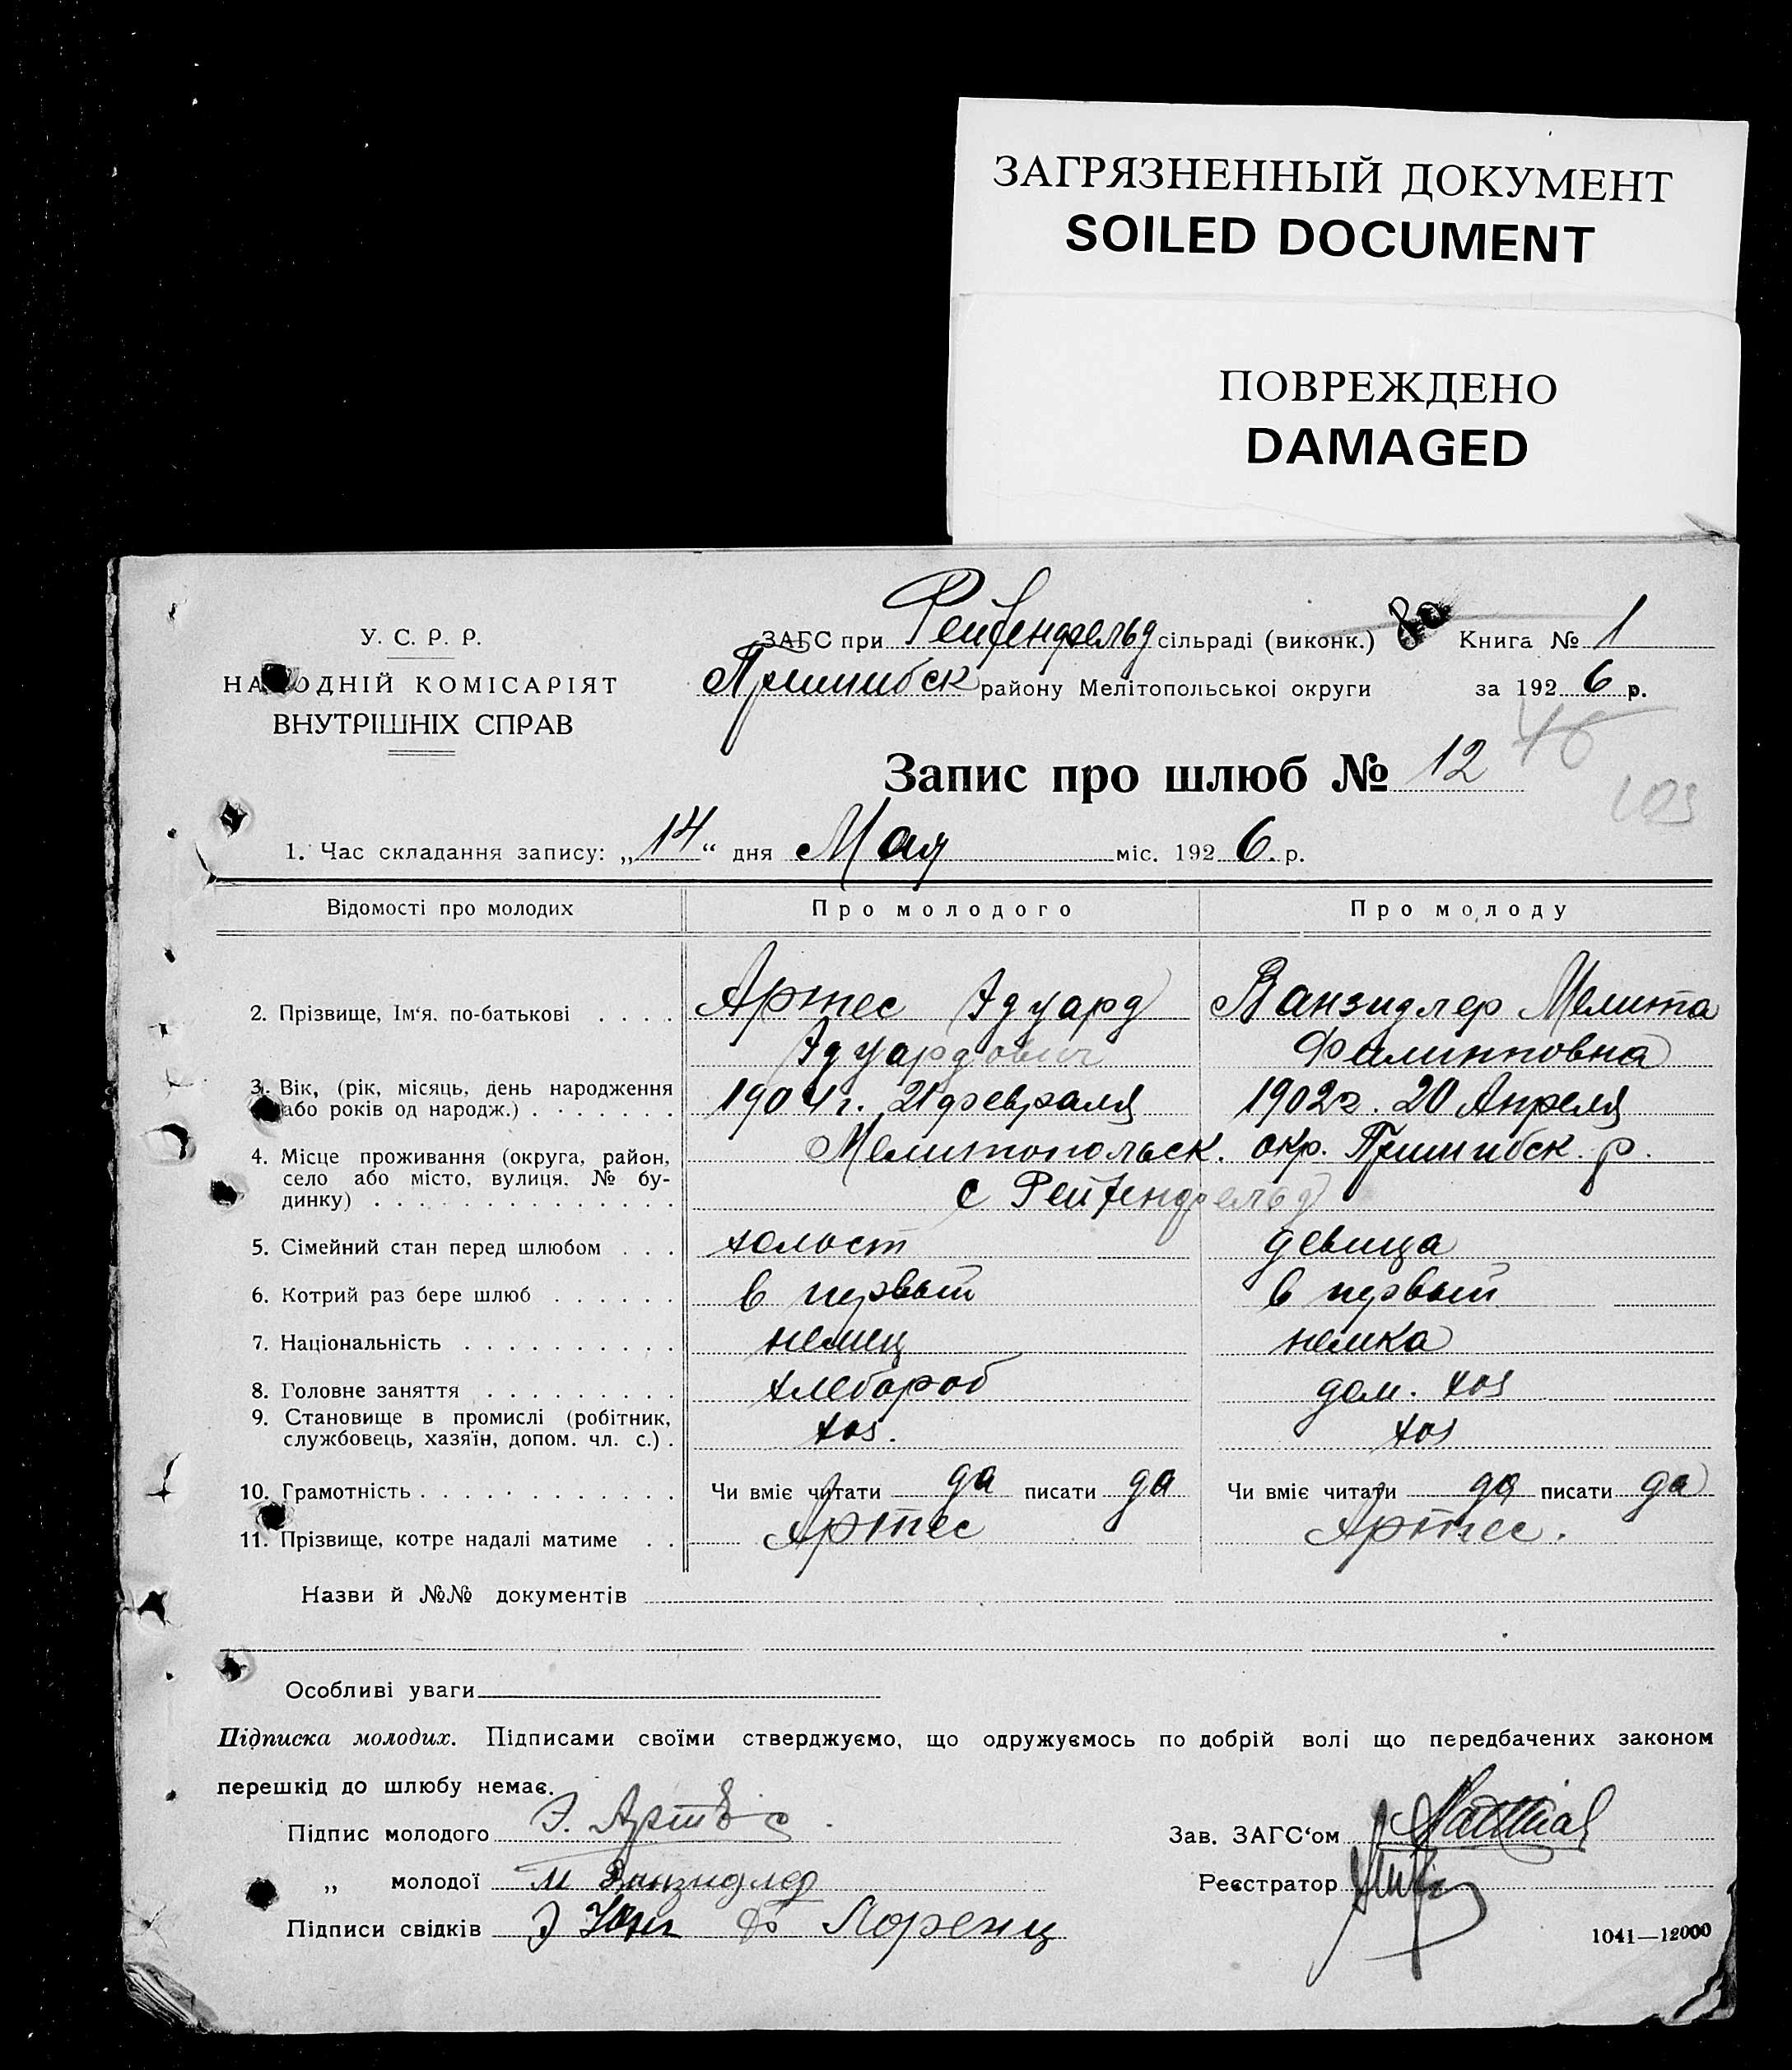 ЗАГРЯЗНЕННЫЙ ДОКУМЕНТ
SOILED DOCUMENT
ПОВРЕЖДЕНО
DAMAGED
У. С. Р. Р.
НАРОДНІЙ КОМІСАРІЯТ
ВНУТРІШНІХ СПРАВ
ЗАГС при Рейхенфельд сільраді (виконк.) Книга № 1
Пришибск району Мелітопольськоі округи за 192 6 р.
Запис про шлюб № 12
1. Час складання запису: „14“ дня Мая міс. 192 6. р.
Відомості про молодих Про молодого Про молоду
2. Прізвище, Ім‘я. по-батькові . . . . Артес Эдуард Ванзидлер Мелита
Эдуардович Филипповна
3. Вік, (рік, місяць, день народження 1904 г. 21 февраля 1902 г. 20 Апреля
або років од народж.) . . . . . . .
4. Місце проживання (округа, район, Мелитопольск. окр. Пришибск. р.
село або місто, вулиця. № бу-
динку) . . . . . . . . . . . . . . с Рейхенфельд
5. Сімейний стан перед шлюбом . . . холост девица
6. Котрий раз бере шлюб . . . . . . в первый в первый
7. Національність . . . . . . . . . . немец немка
8. Головне заняття . . . . . . . . . хлебороб дом. хоз
9. Становище в промислі (робітник, хоз. хоз
службовець, хазяїн, допом. чл. с.) .
10. Грамотність . . . . . . . . . . . . Чи вміє читати да писати да Чи вміє читати да писати да
11. Прізвище, котре надалі матиме . . Артес Артес.
Назви й №№ документів
Особливі уваги
Підписка молодих. Підписами своїми стверджуємо, що одружуємось по добрій волі що передбачених законом
перешкід до шлюбу немає.
Підпис молодого Э. Артес Зав. ЗАГС‘ом
„ молодої М Ванзидлер Реєстратор
Підписи свідків Лоренц
1041—12000